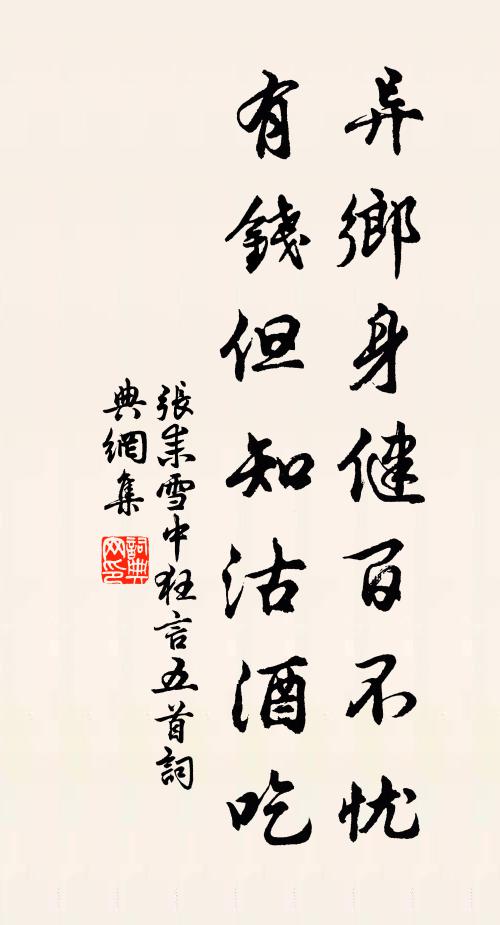 异鄉身健百不忧
有錢但知沽酒吃
張耒雪中狂言五首詞
典網集
詞典
网印